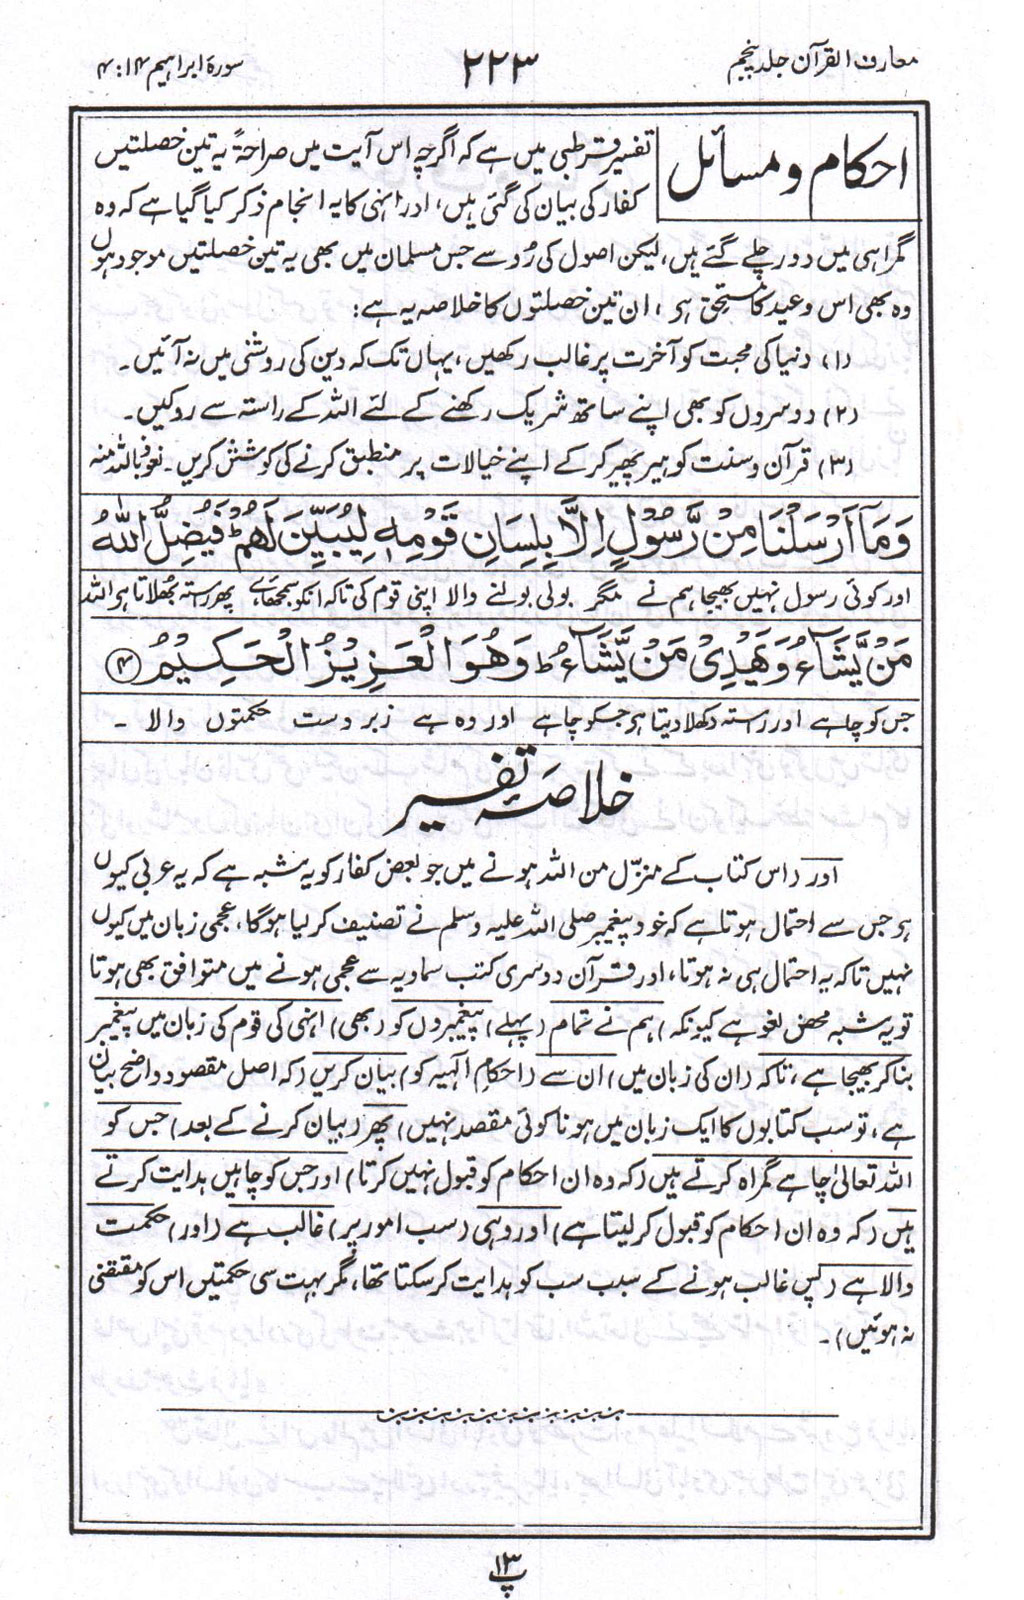 معارف القرآن جلد پنجم
۲۲۳
سورۃ ابراہیم ۱۴ : ۴
احکام و مسائل
تفسیر قرطبی میں ہے کہ اگرچہ اس آیت میں صراحۃً یہ تین خصلتیں
کفار کی بیان کی گئی ہیں، اور انہی کا یہ انجام ذکر کیا گیا ہے کہ وہ
گمراہی میں دور چلے گئے ہیں، لیکن اصول کی رُو سے جس مسلمان میں بھی یہ تین خصلتیں موجود ہوں
وہ بھی اس وعید کا مستحق ہی، ان تین خصلتوں کا خلاصہ یہ ہے:
(۱) دنیا کی محبت کو آخرت پر غالب رکھیں، یہاں تک کہ دین کی روشنی میں نہ آئیں۔
(۲) دوسروں کو بھی اپنے ساتھ شریک رکھنے کے لئے اللہ کے راستہ سے روکیں۔
(۳) قرآن و سنت کو ہیر پھیر کر کے اپنے خیالات پر منطبق کرنے کی کوشش کریں۔ نعوذ باللہ منہ
وَمَآ اَرْسَلْنَا مِنْ رَّسُوْلٍ اِلَّا بِلِسَانِ قَوْمِهٖ لِيُبَيِّنَ لَهُمْ ؕ فَيُضِلُّ اللّٰهُ
اور کوئی رسول نہیں بھیجا ہم نے مگر بولی بولنے والا اپنی قوم کی تاکہ انکو سمجھائے پھر رستہ بھلاتا ہی اللہ
مَنْ يَّشَآءُ وَيَهْدِيْ مَنْ يَّشَآءُ ؕ وَهُوَ الْعَزِيْزُ الْحَكِيْمُ ﴿۴﴾
جس کو چاہے اور رستہ دکھلا دیتا ہی جسکو چاہے اور وہ ہے زبردست حکمتوں والا ۔
خلاصۂ تفسیر
اور (اس کتاب کے منزّل من اللہ ہونے میں جو بعض کفار کو یہ شبہ ہے کہ یہ عربی کیوں
ہی جس سے احتمال ہوتا ہے کہ خود پیغمبر صلی اللہ علیہ وسلم نے تصنیف کر لیا ہوگا، عجمی زبان میں کیوں
نہیں تاکہ یہ احتمال ہی نہ ہوتا، اور قرآن دوسری کتب سماویہ سے عجمی ہونے میں متوافق بھی ہوتا
تو یہ شبہ محض لغو ہے کیونکہ) ہم نے تمام (پہلے) پیغمبروں کو (بھی) انہی کی قوم کی زبان میں پیغمبر
بنا کر بھیجا ہے، تاکہ (ان کی زبان میں) ان سے (احکامِ الٰہیہ کو) بیان کریں (کہ اصل مقصود واضح بیان
ہے، تو سب کتابوں کا ایک زبان میں ہونا کوئی مقصد نہیں) پھر (بیان کرنے کے بعد) جس کو
اللہ تعالیٰ چاہے گمراہ کرتے ہیں (کہ وہ ان احکام کو قبول نہیں کرتا) اور جس کو چاہیں ہدایت کرتے
ہیں (کہ وہ ان احکام کو قبول کر لیتا ہے) اور وہی (سب امور پر) غالب ہے (اور) حکمت
والا ہے (پس غالب ہونے کے سبب سب کو ہدایت کر سکتا تھا، مگر بہت سی حکمتیں اس کو مقتضی
نہ ہوئیں)۔
پ ۱۳